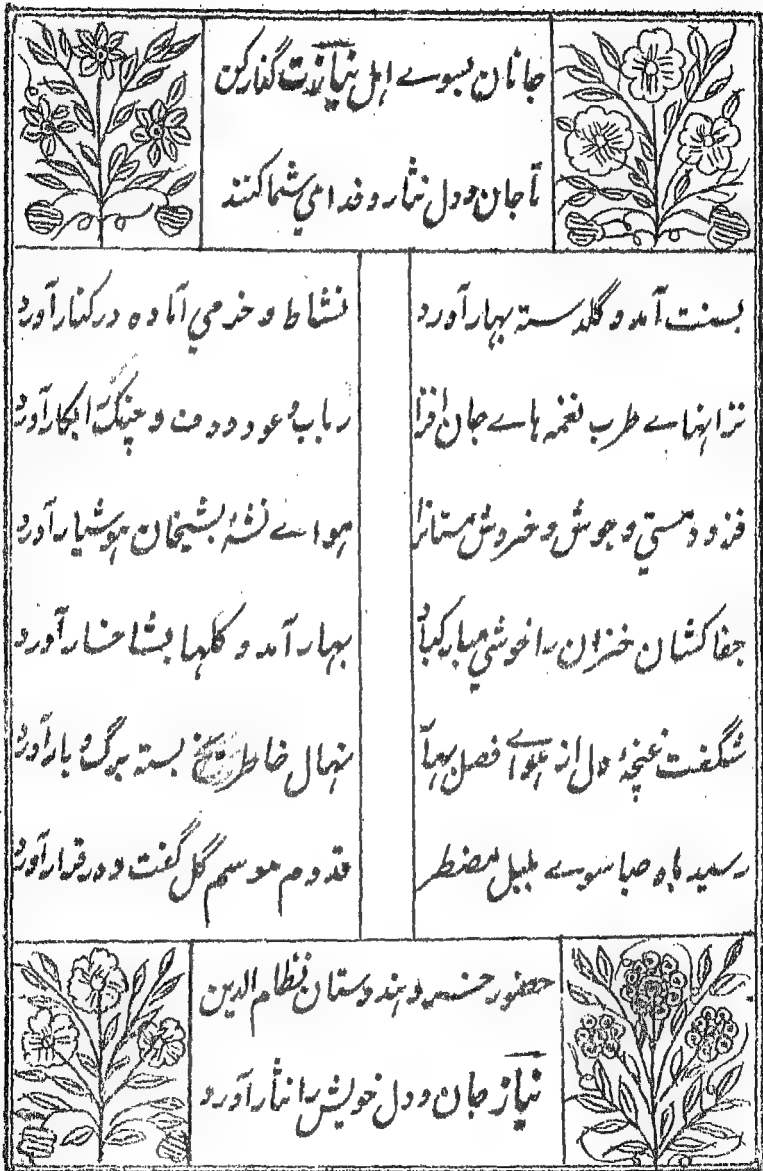 جانان بسوے اہل نیازت گذار کن
تا جان و دل نثار و فدای شما کنند
بسنت آمد و گلدستہ بہار آورد
نشاط و خرمي آمادہ در کنار آورد
طرب نغمہ ہاے جان افزا
رباب و عود و دف و چنگ را بکار آورد
فزود مستي و جوش و خروش مستانرا
ہواے نشہ بشیخان ہوشیار آورد
جفا کشان خزان را خوشي مبارکباد
بہار آمد و گلہا بشاخسار آورد
شگفت غنچۂ دل از ہواے فصل بہار
نہال خاطر بستہ برگ و بار آورد
رسید باد صبا سوے بلبل مضطر
قدوم موسم گل گفت و در قرار آورد
حضور خسرو ہندوستان نظام الدین
نیاز جان و دل خویش را نثار آورد